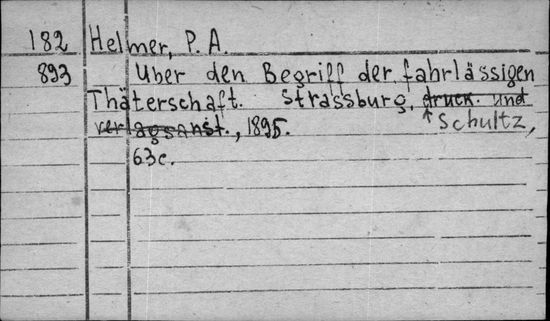 182 Helmer, P. A.
893 Uber den Begriff der fahrlässigen
Thäterschaft. Strassburg, druck. und
verlagsanst., 1895. ↑Schultz,
63c.